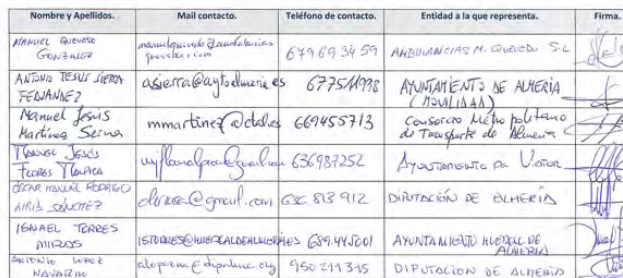 Nombre y Apellidos. Mail contacto. Teléfono de contacto. Entidad a la que representa. Firma.
MANUEL QUEVEDO GONZALEZ 679693459 AMBULANCIAS M. QUEVEDO S.L
ANTONIO JESUS SIERRA FERNANDEZ asierra@aytoalmeria.es 677511998 AYUNTAMIENTO DE ALMERIA (MOVILIDAD)
Manuel Jesús Martínez Serna mmartinez@ctal.es 669455713 Consorcio Metropolitano de Transporte de Almería
Manuel Jesús Flores Malpica 636987252 Ayuntamiento de Viator
OSCAR MANUEL RODRIGO SÁNCHEZ @gmail.com 636 813 912 DIPUTACIÓN DE ALMERÍA
ISMAEL TORRES MIRAS ISTORRES@HUERCALDEALMERIA.ES 689.445001 AYUNTAMIENTO HUERCAL DE ALMERIA
ANTONIO LOPEZ NAVARRO 950211315 DIPUTACION DE ALMERIA